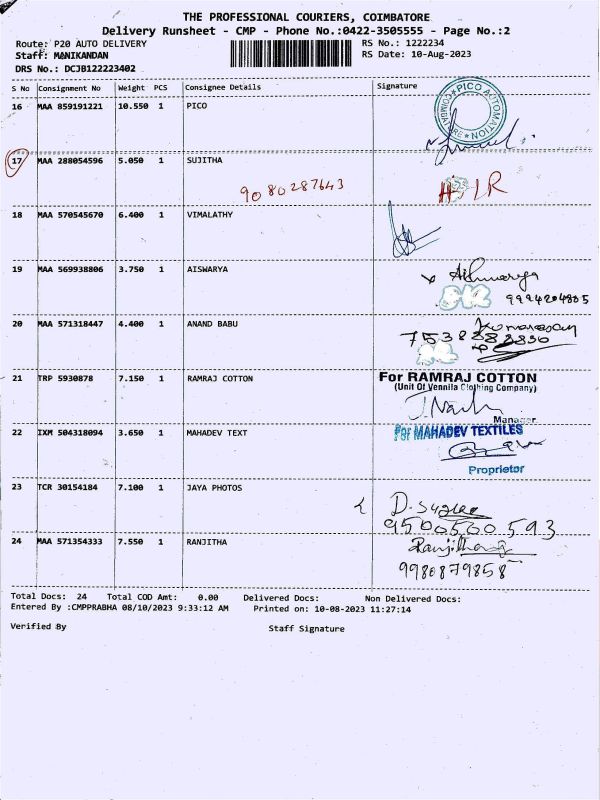 THE PROFESSIONAL COURIERS, COIMBATORE
Delivery Runsheet - CMP - Phone No.:0422-3505555 - Page No.:2
Route: P20 AUTO DELIVERY
RS No.: 1222234
Staff: MANIKANDAN
RS Date: 10-Aug-2023
DRS No.: DCJB122223402
S No Consignment No Weight PCS Consignee Details Signature
16 MAA 859191221 10.550 1 PICO
PICO AUTOMATION
17 MAA 288054596 5.050 1 SUJITHA
9080287643
18 MAA 570545670 6.400 1 VIMALATHY
19 MAA 569938806 3.750 1 AISWARYA
Aishwarya
9994204885
20 MAA 571318447 4.400 1 ANAND BABU
Kumaresan
21 TRP 5930878 7.150 1 RAMRAJ COTTON
For RAMRAJ COTTON
(Unit Of Vennila Clothing Company)
Manager
22 IXM 504318094 3.650 1 MAHADEV TEXT
For MAHADEV TEXTILES
Proprietor
23 TCR 30154184 7.100 1 JAYA PHOTOS
9500560593
24 MAA 571354333 7.550 1 RANJITHA
9980879858
Total Docs: 24 Total COD Amt: 0.00 Delivered Docs: Non Delivered Docs:
Entered By :CMPPRABHA 08/10/2023 9:33:12 AM Printed on: 10-08-2023 11:27:14
Verified By
Staff Signature